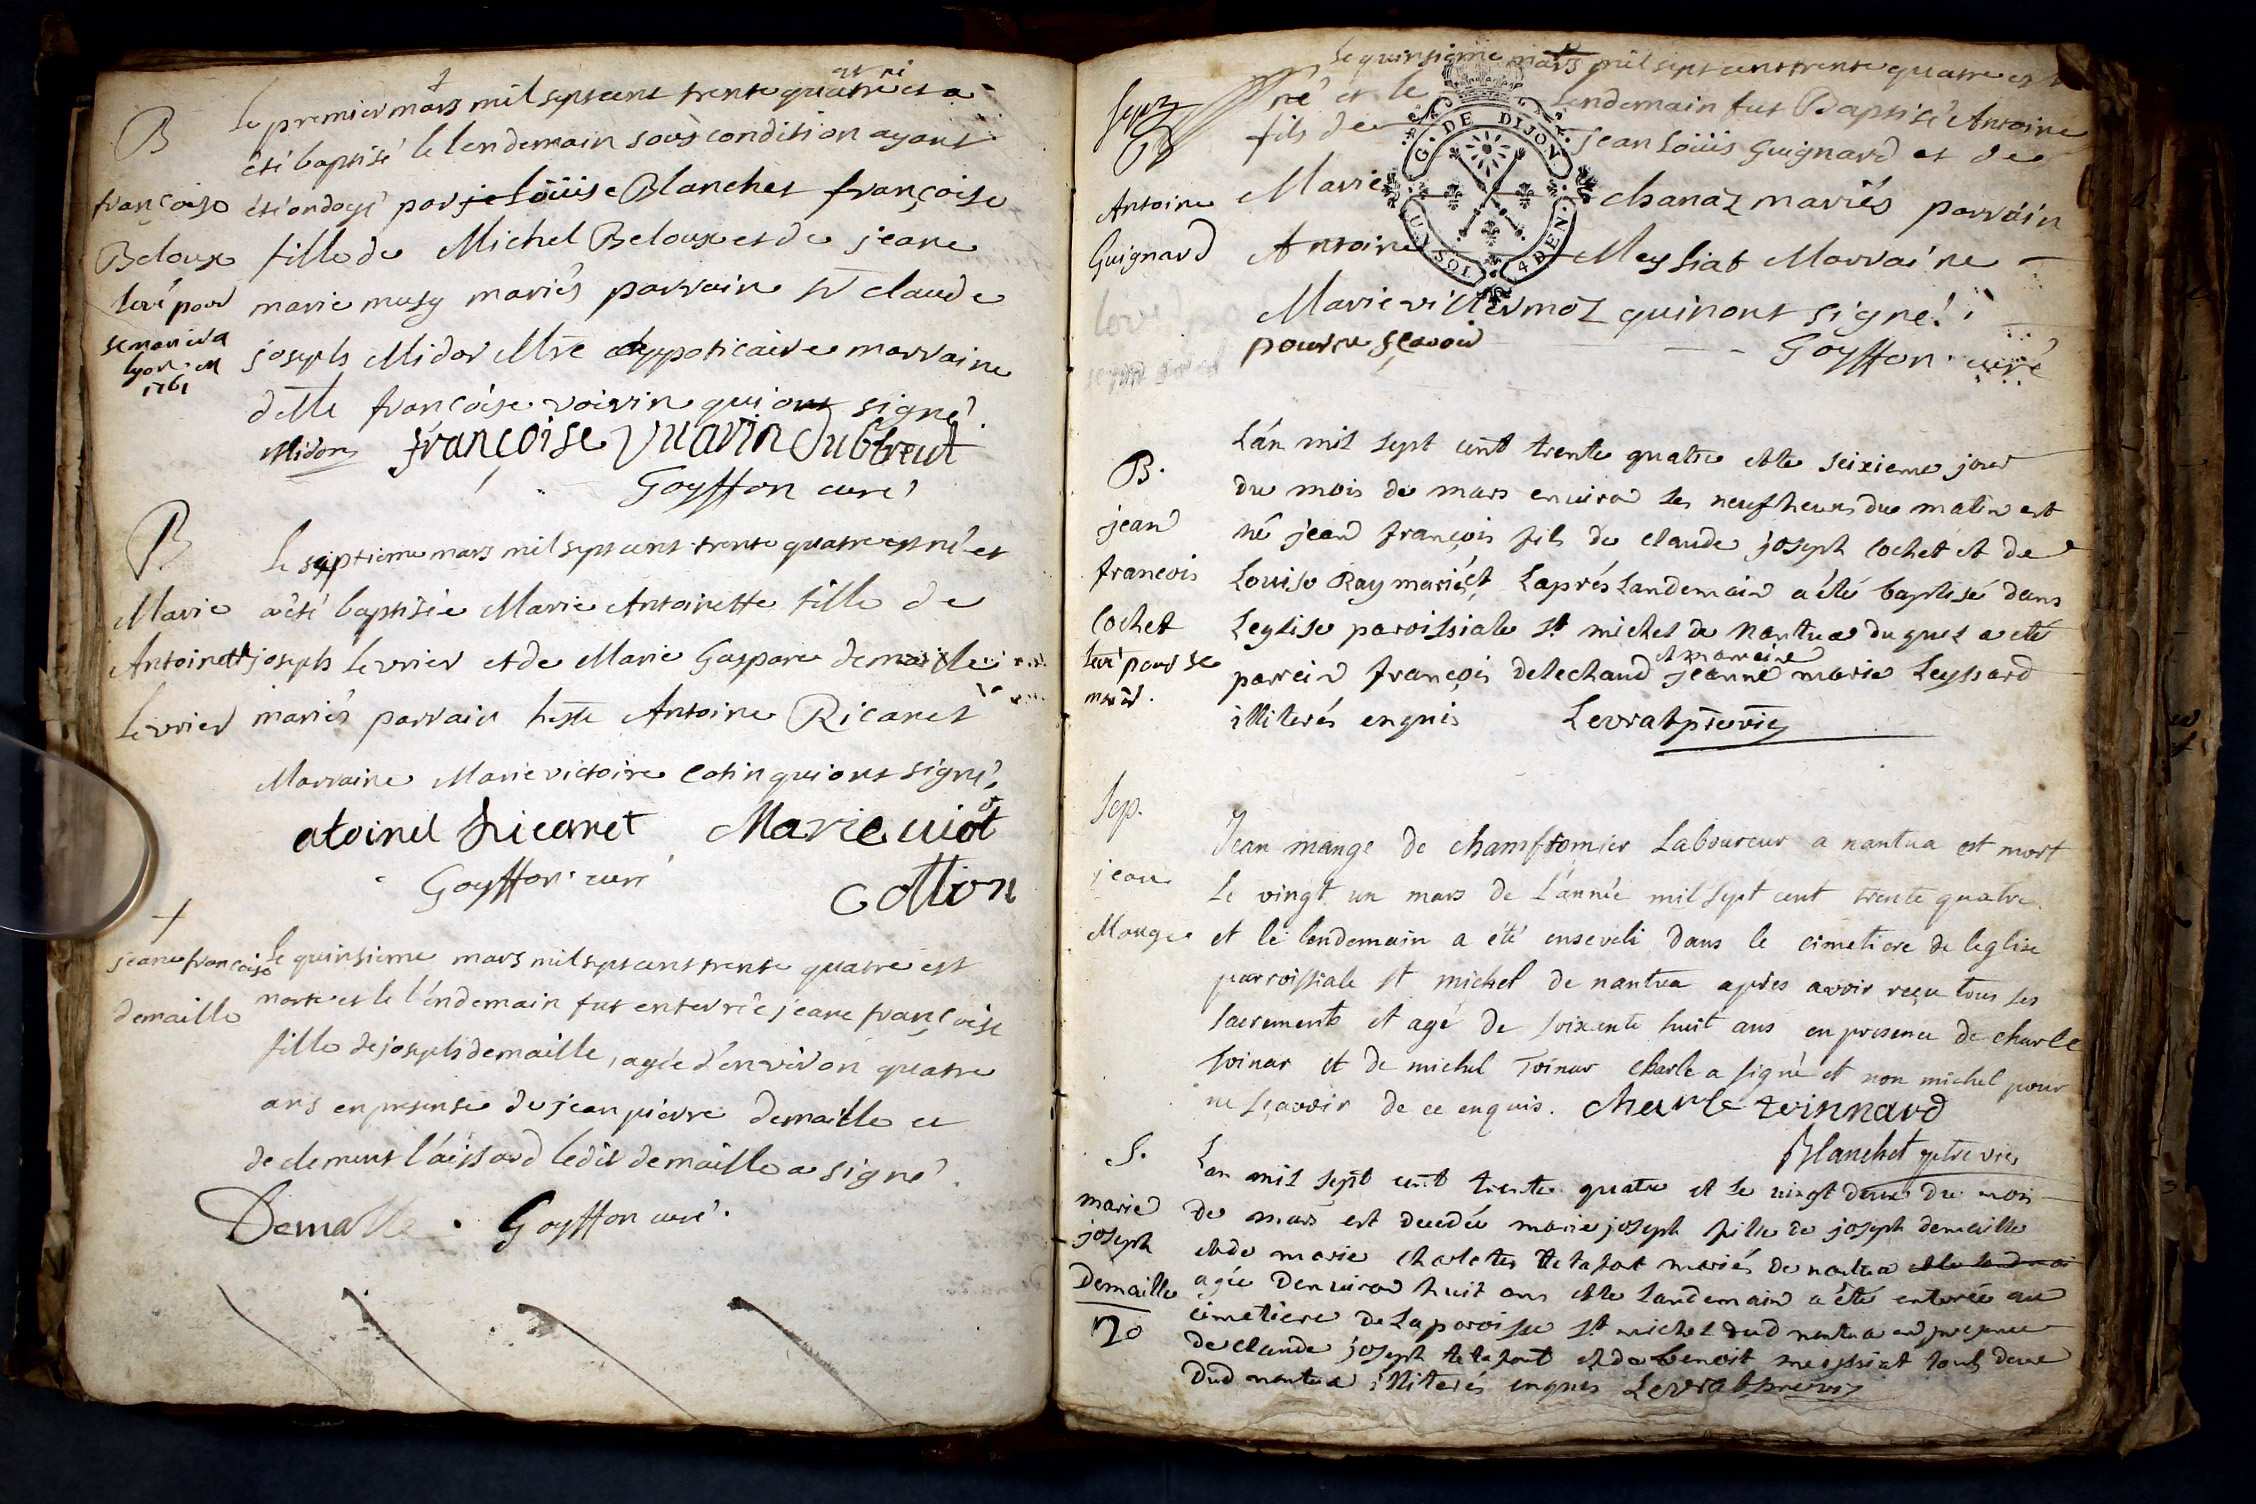 B
françoise
Beloux
levé pour
se marier a
lyon en
1761
est né
Le premier mars mil sept cent trente quatre et a
été baptisé le lendemain sous condition ayant
été ondoyé par je Loüise Blanchet françoise
fille de Michel Beloux et de jeane
marie musy mariés parrain Sr claude
joseph Midor Mre appoticaire marraine
delle françoise voirin qui ont signé
Midor françoise Vuarin Dubbreut
Goyffon curé
B
Marie
Antoinette
Levrier
Le septieme mars mil sept cent trente quatre est né et
a été baptisée Marie Antoinette fille de
joseph Levrier et de Marie Gaspare demaille
mariés parrain Antoine Ricanet
Marraine Marie victoire Cotin qui ont signé
atoinel Ricanet Marie uiot
Goyffon curé Cottion
+
jeane françoise
demaille
Le quinsieme mars mil sept cent trente quatre est
morte et le l'endemain fut enterrée jeane françoise
fille de joseph demaille, agée d'environ quatre
ans en presense de jean pierre demaille et
de clement l'aissard ledit demaille a signé
Demalle. Goyffon curé.
B
Antoine
Guignard
Le quinsieme mars mil sept cent trente quatre est
né et le lendemain fut Baptisé Antoine
fils de jean Loüis Guignard et de
Marie chanaz mariés parrain
Antoine Meysiat Marraine
Marie villermoz qui n'ont signé
pour ne sçavoir
Goyffon curé
G. DE DIJON
U. SOL 4 DEN.
B.
jean
francois
Cochet
levé pour se
marier.
L'an mil sept cent trente quatre et le seixieme jour
du mois de mars enviro les neuf heures du matin est
né jean françois fils de claude joseph Cochet et de
Louise Ray mariés et l'aprés landemain a été baptisé dans
Leglise paroissiale st michel de Nantua duquel a eté
et marreine
parrein françois delechaud jeanne marie Leyssard
illiterés enquis Levrat previc
Sep.
jean
Mange
Jean mange de Chamfromier Laboureur a nantua est mort
Le vingt un mars de L'année mil sept cent trente quatre
et le lendemain a été enseveli dans le cimetiere de leglise
parroissiale st michel de nantua apres avoir reçu tous les
sacrements et agé de soixente huit ans en presence de charle
toinar et de michel Toinar charle a signé et non michel pour
ne sçavoir de ce enquis. Charle toinnard
Blanchet ptre vic
S.
marie
joseph
Demaille
20
L'an mil sept cent trente quatre et le vingt deux du mois
de mars est decedée marie joseph fille de joseph demaille
et de marie charlotte tetafort mariés de nantua et le landemai
agée d'environ huit ans et le landemain a été enterée au
cimetiere de la paroisse st michel dud nantua en presence
de claude joseph tetafort et de benoit meissiat tous deux
dud nantua illiterés enquis Levrat previc